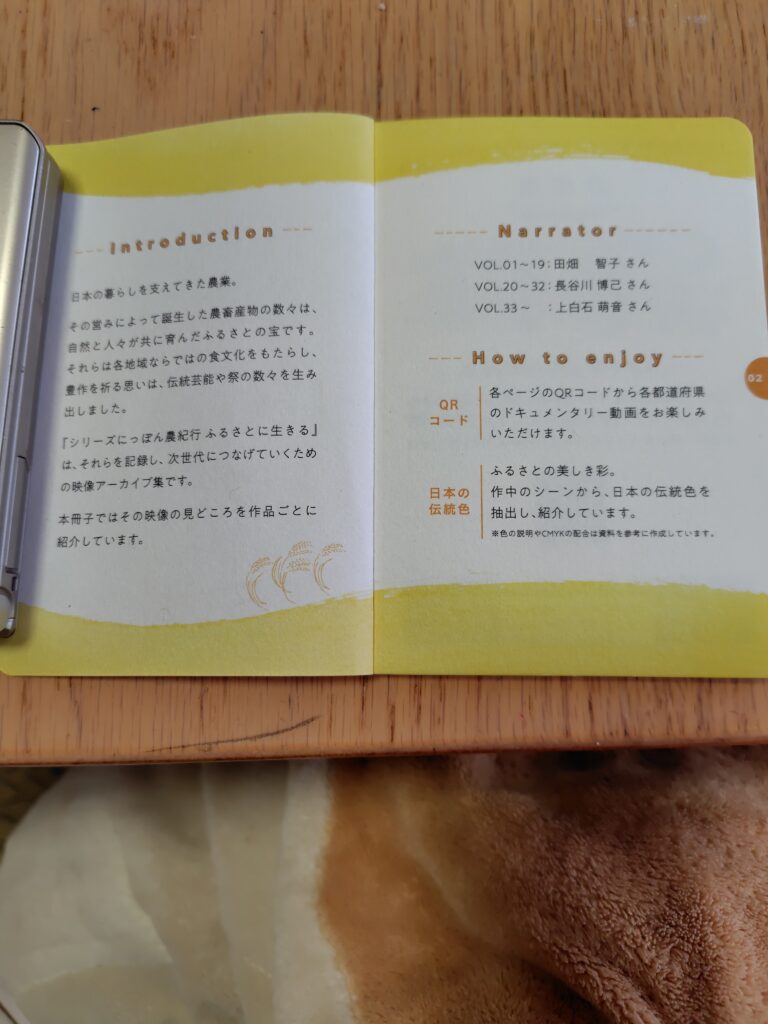 Introduction
日本の暮らしを支えてきた農業。
その営みによって誕生した農畜産物の数々は、
自然と人々が共に育んだふるさとの宝です。
それらは各地域ならではの食文化をもたらし、
豊作を祈る思いは、伝統芸能や祭の数々を生み
出しました。
『シリーズにっぽん農紀行 ふるさとに生きる』
は、それらを記録し、次世代につなげていくため
の映像アーカイブ集です。
本冊子ではその映像の見どころを作品ごとに
紹介しています。
Narrator
VOL.01〜19：田畑 智子 さん
VOL.20〜32：長谷川 博己 さん
VOL.33〜 ：上白石 萌音 さん
How to enjoy
QR
コード
各ページのQRコードから各都道府県
のドキュメンタリー動画をお楽しみ
いただけます。
日本の
伝統色
ふるさとの美しき彩。
作中のシーンから、日本の伝統色を
抽出し、紹介しています。
※色の説明やCMYKの配合は資料を参考に作成しています。
02